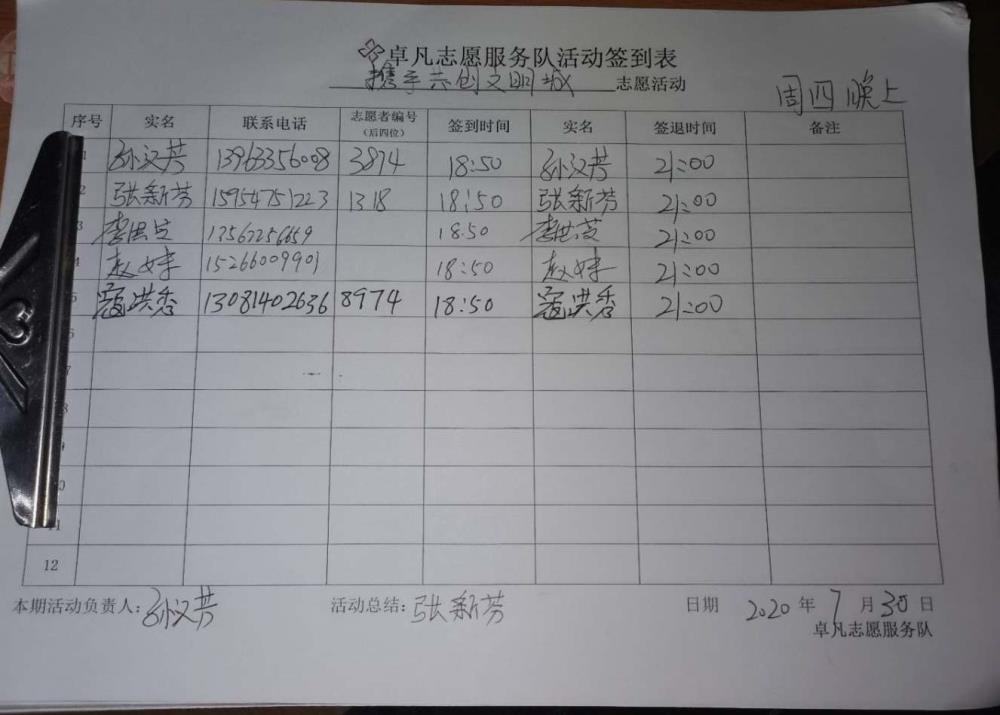 卓凡志愿服务队活动签到表
携手共创文明城 志愿活动
周四晚上
序号 实名 联系电话 志愿者编号（后四位） 签到时间 实名 签退时间 备注
1 孙汉芳 13963356008 3874 18:50 孙汉芳 21:00
2 张新芳 15954751223 1318 18:50 张新芳 21:00
3 13562256659 18:50 21:00
4 赵妹 15266009901 18:50 赵妹 21:00
5 寇洪秀 13081402636 8974 18:50 寇洪秀 21:00
6
7
8
9
10
11
12
本期活动负责人：孙汉芳 活动总结：张新芳 日期 2020 年 7 月 30 日
卓凡志愿服务队